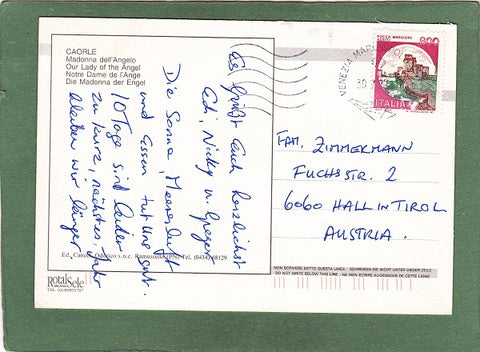 CAORLE
Madonna dell'Angelo
Our Lady of the Angel
Notre Dame de l'Ange
Die Madonna der Engel
Die Sonne, Meeresluft
und Essen tut uns gut.
10 Tage sind leider
zu kurz, nächstes Jahr
bleiben wir länger
Es grüßt Euch herzlichst
Edi, Nicky u. Gregor
Tel. (0434) 68129
VENEZIA
ROCCA MAGGIORE
800
ITALIA
FAM. ZIMMERMANN
FUCHSSTR. 2
6060 HALL IN TIROL
AUSTRIA.
NON SCRIVERE SOTTO QUESTA LINEA - SCHREIBEN SIE NICHT UNTER DIESER ZEILE
DO NOT WRITE BELOW THIS LINE - NE RIEN ECRIRE AUDESSOUS DE CETTE LIGNE